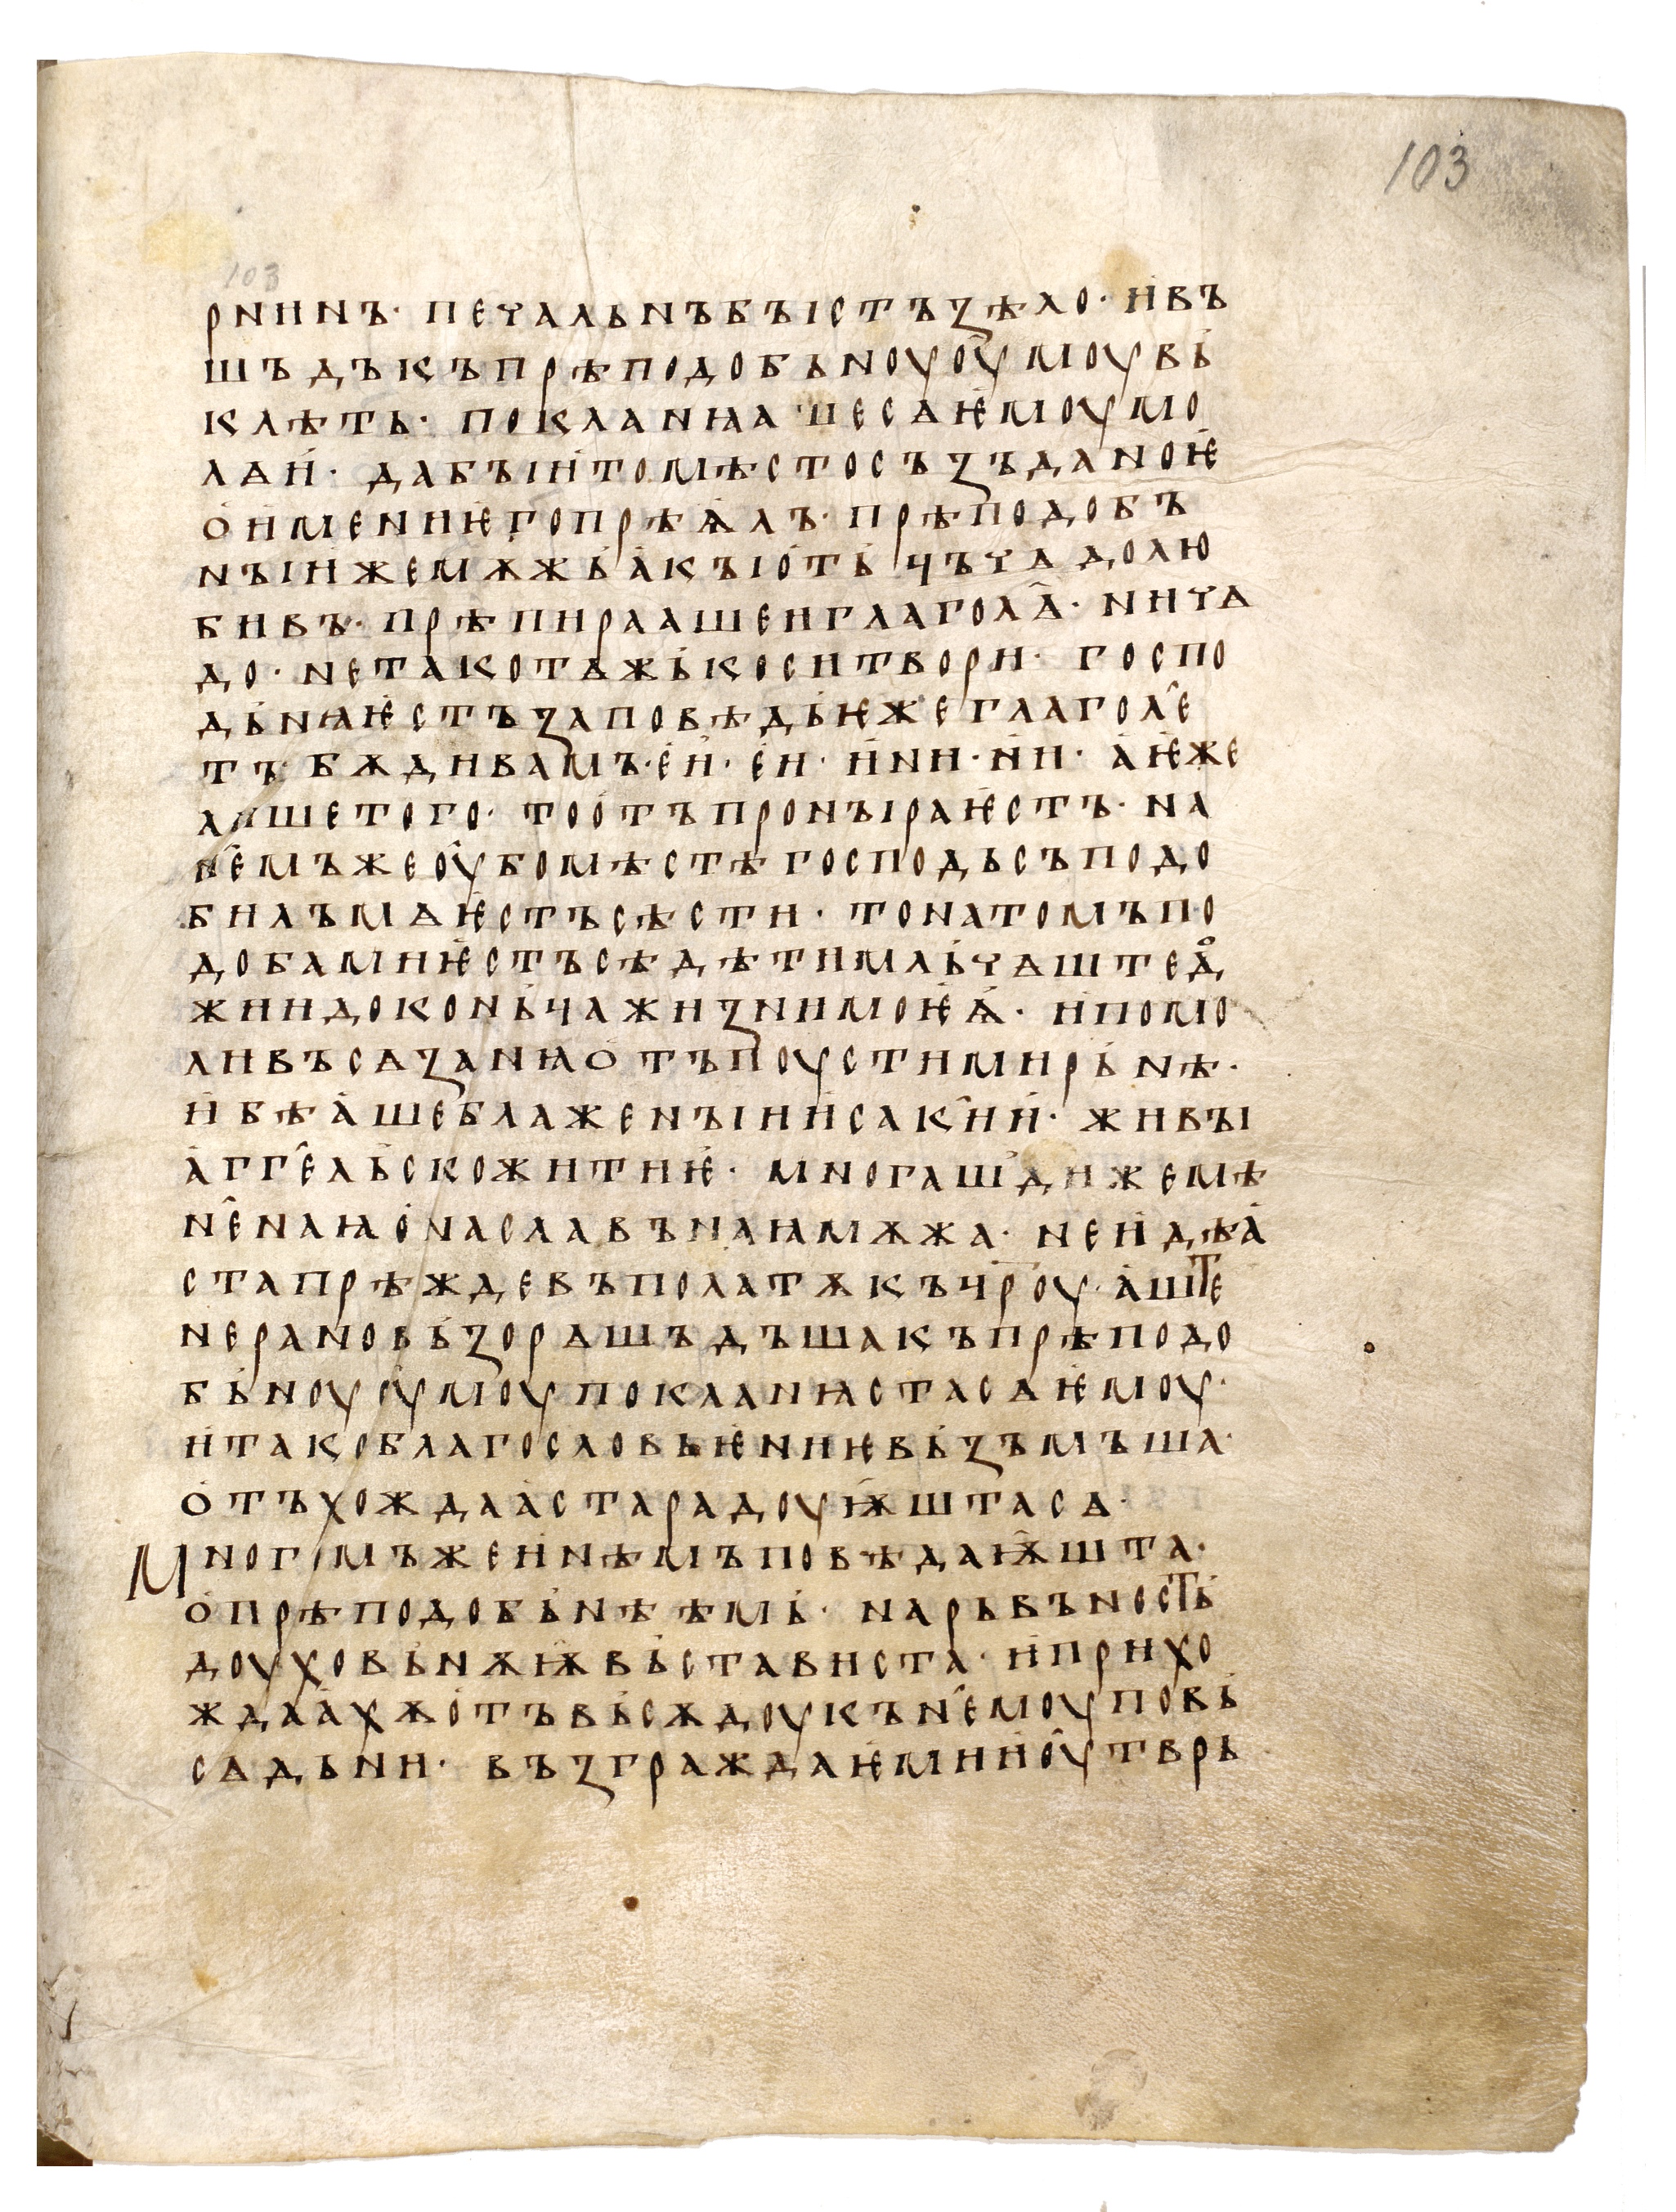 103
103
рнинъ· печальнъбꙑстъꙁѣло· и҅въ
шъдъкъпрѣподобьноуо̑умоувь҅
клѣть· покланꙗа шесѧѥ҅моумо
лѧи҅· дабꙑи҅томѣстосъꙁъданоѥ҅
о҅именниѥ҅гопрѣѩ҅лъ· прѣподобъ
нꙑи҅жемѫжь҅а҅кꙑо҅ть҅чъчѧдолю
бивъ· прѣпираашеиглагол҄ѧ· ничѧ
до· нетакотѧжь҅коситвори· госпо
дь҅нꙗѥ҅стъꙁаповѣдь҅ꙗжеглагол҄е
тъ· бѫдивамъ·е҅и҅· е҅и· и҅ни·ни҅· а҅ѥ҅же
лишетого· тоо҅тъпронꙑраѥ҅стъ· на
н҄емъжео̑убомѣстѣгосподьсъподо
билъмѧѥ҅стъсѣсти· тонатомъпо
добамниѥ҅стъсѣдѣтимль҅чѧштеѧ҅
жиидоконь҅чажиꙁнимоѥ҅ѩ҅· и҅помо
ливъсѧꙁанꙗо҅тъпоустимирь҅нѣ·
и҅бѣа҅шеблаженꙑии҅саки҅и҅· живꙑ
а҅гг҄ель҅скожитиѥ҅· многашь҅дижемѣ
н҄енаꙗо҅наславънаꙗмѫжа· неи҅дѣа҅
стапрѣждевъполатѫкъчр҃оу· а҅ште
нерановь҅ꙁорѧшъдъшакъпрѣподо
бь҅ноуоумоупокланꙗстасѧѥ҅моу·
и҅такоблагословьѥ҅ниѥвь҅ꙁъмъша·
о҅тъхождаа҅старадоуѭ҅штасѧ·
Многомъжеи҅нѣмъповѣдаѭ҅шта·
о҅прѣподобь҅нѣѣмь҅· нарьвъность҅
доуховь҅нѫѭ҅вь҅стависта· и҅прихо
ждаа҅хѫо҅тъвь҅сѫдоукън҄емоуповь҅
сѧдьни· въꙁграждаѥ҅мии҅о̑утврь